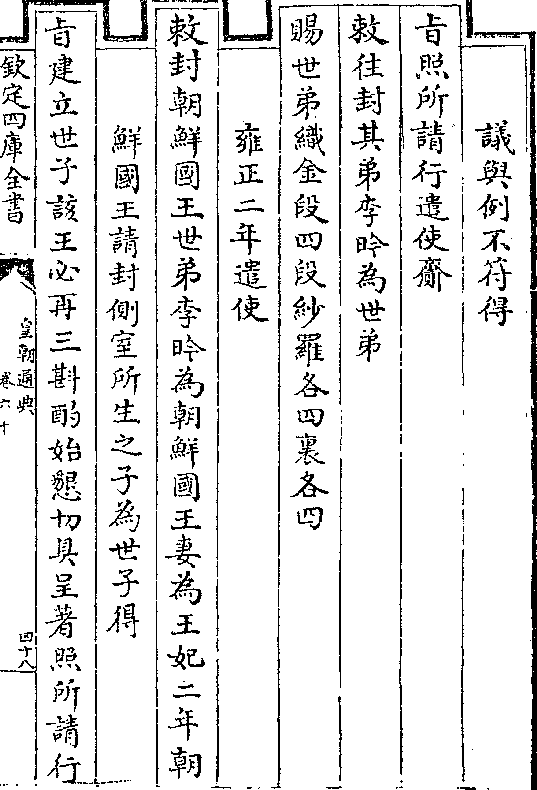 議與例不符得
㫖照所請行遣使齎
敕往封其弟李昑為世弟
賜世弟織金段四段紗羅各四裏各四
雍正二年遣使
敕封朝鮮國王世弟李昑為朝鮮國王妻為王妃二年朝
鮮國王請封側室所生之子為世子得
㫖建立世子該王必再三斟酌始懇切具呈著照所請行
欽定四庫全書
皇朝通典
卷六十
四十八